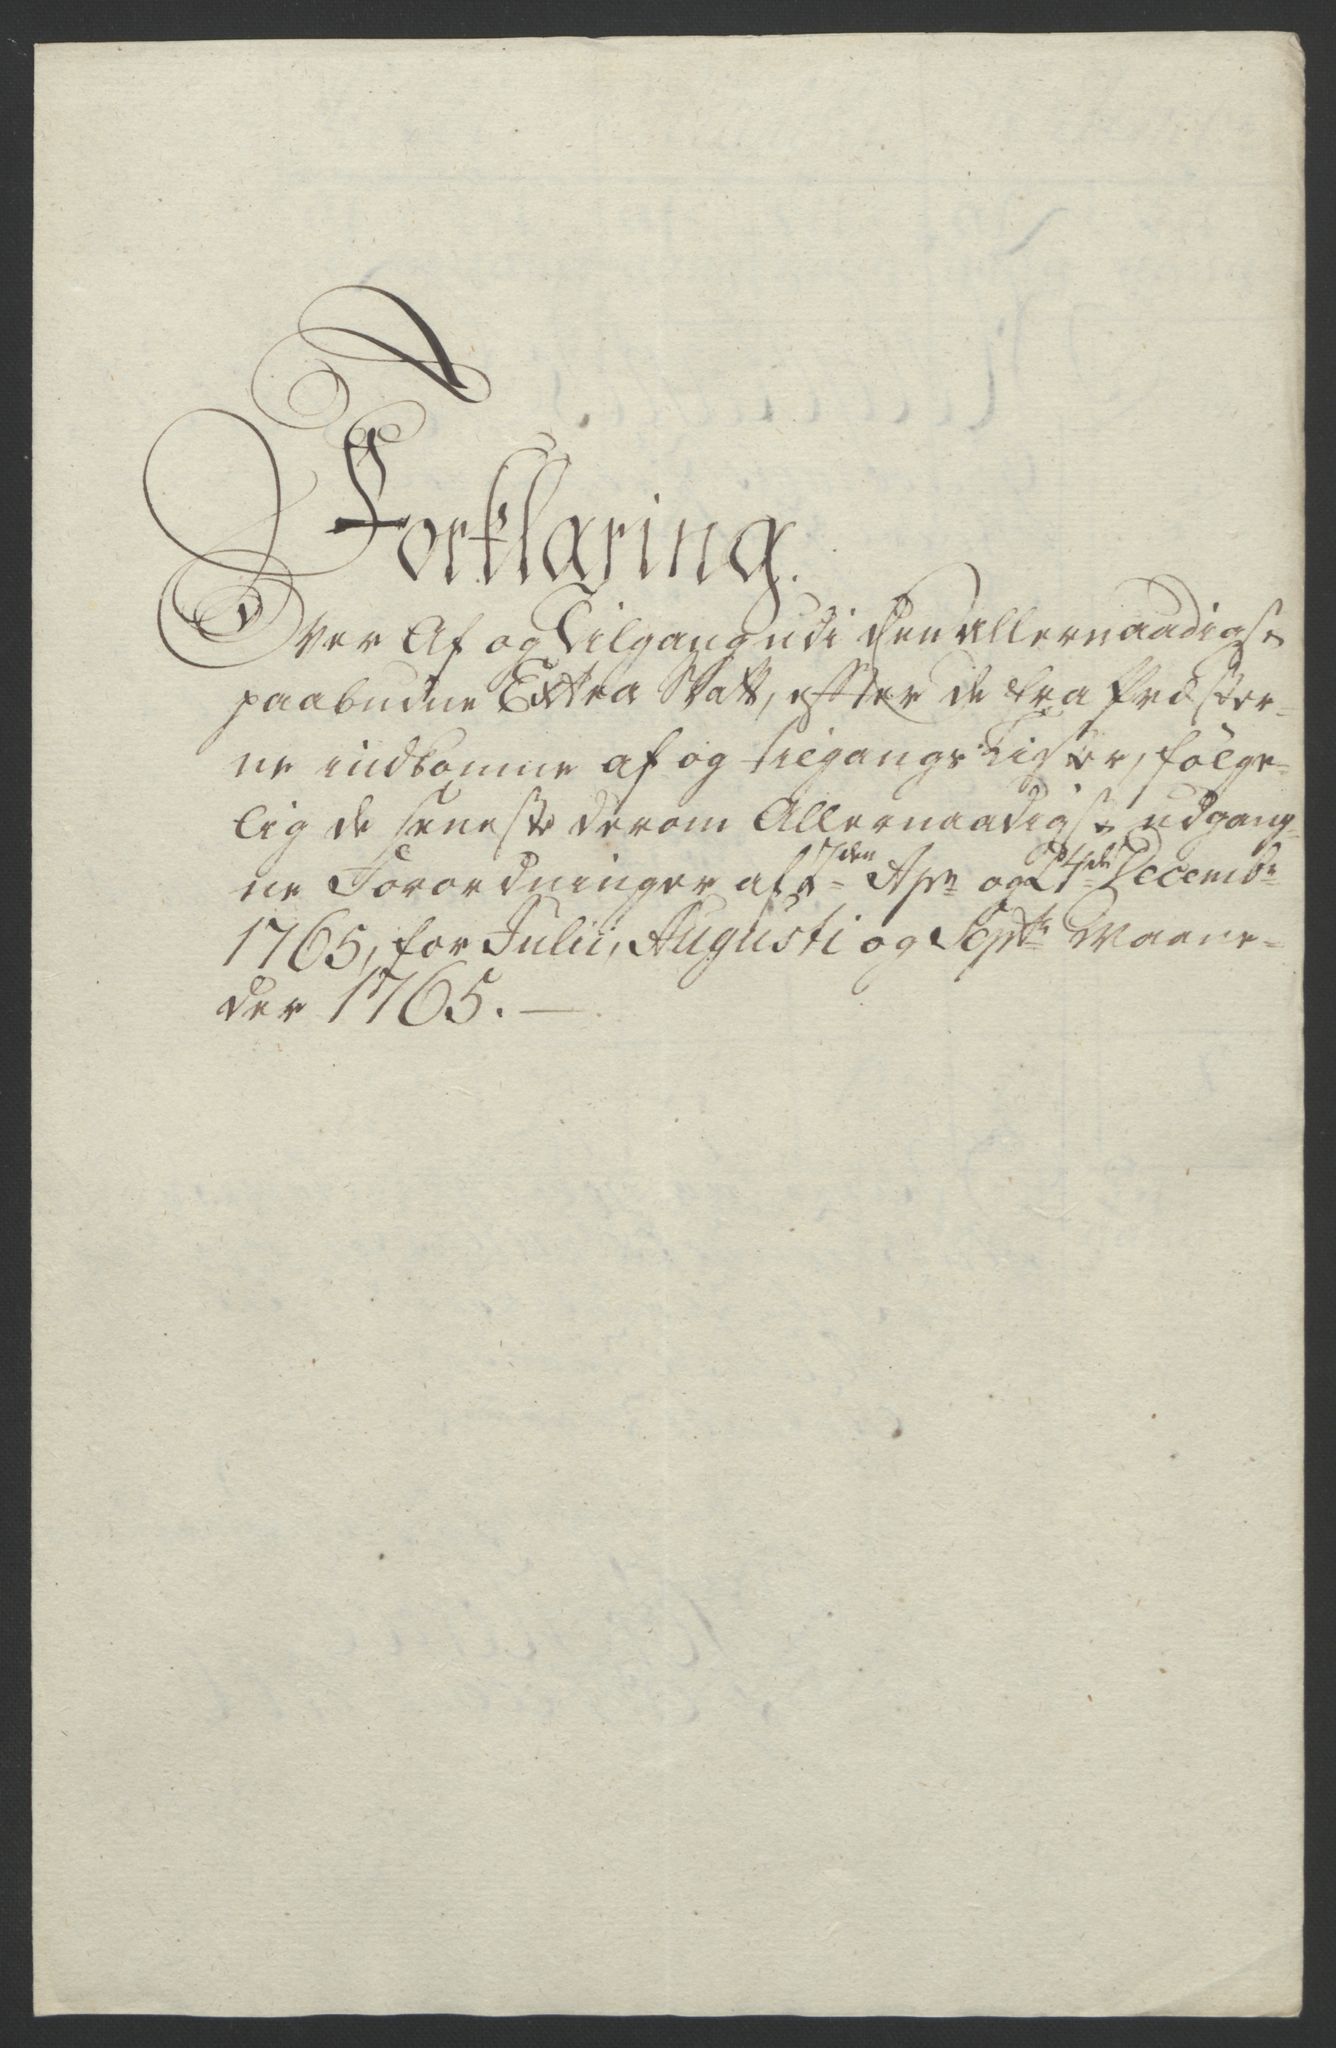 Forklaring.
Over Af og Tilgang udi den allernaadigst
paabudne Extra Skatt, efter de fra Præster-
ne indkomne af og tilgangs Lister, følge-
lig de seneste derom Allernaadigst udgang-
ne Forordninger af 7den Apr og 24de Decembr
1765, for Julii, Augusti og Septbr Maane-
der 1765. —